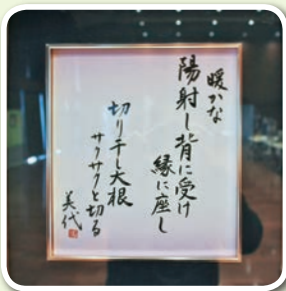 暖かな
陽射し背に受け
縁に座し
切り干し大根
サクサクと切る
美代